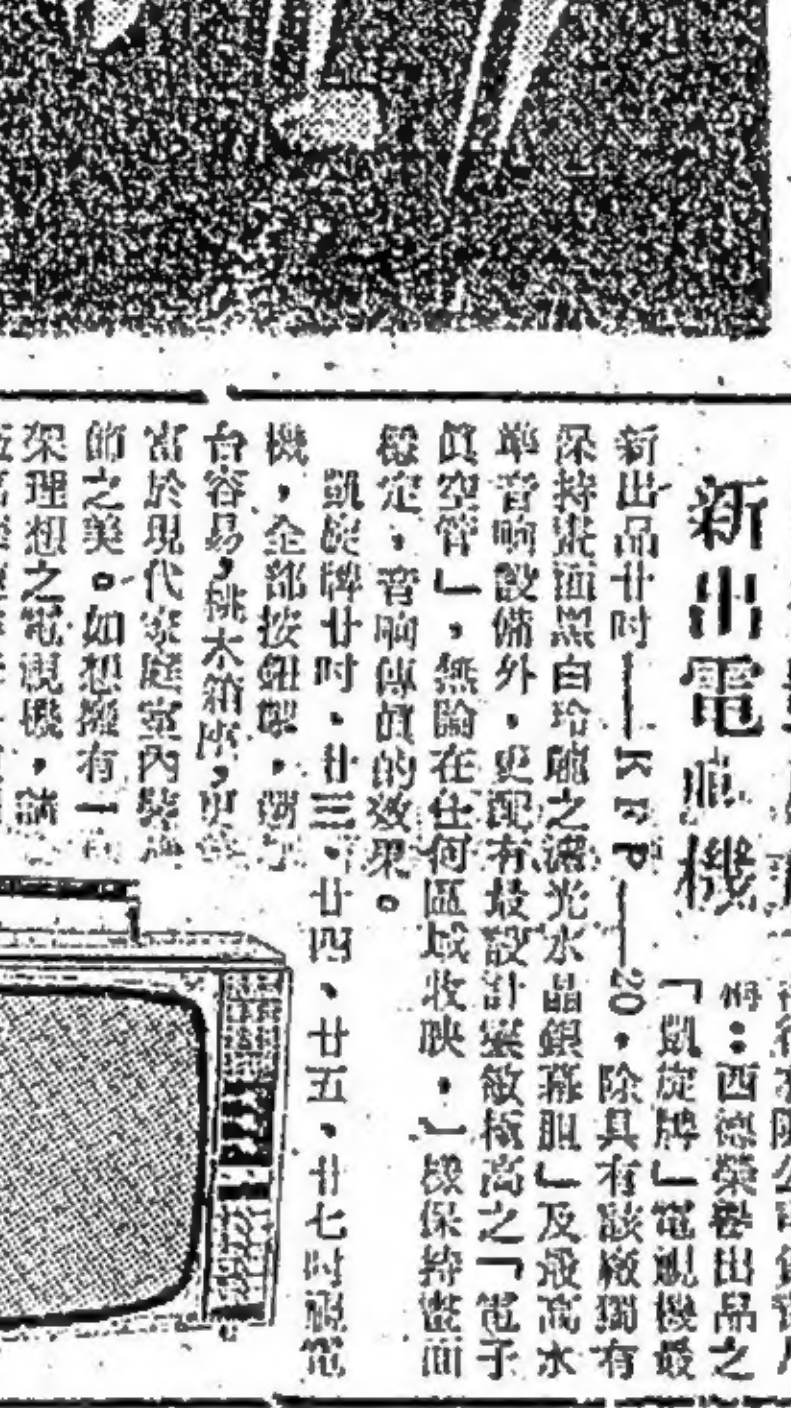 新出電視機
得:西德榮譽出品之
「凱旋牌」電視機最
新出品廿吋——KFP——20,除具有該廠獨有
保持畫面黑白玲瓏之濾光水晶銀幕胆」及最高水
準音响設備外,更配有最設計靈敏極高之「電子
眞空管」,無論在任何區域收映,一樣保持畫面
穩定,音响傳眞的效果。
凱旋牌廿吋、廿三、廿四、廿五、廿七吋視電
機,全部按鈕掣,
台容易,桃木箱座,更
富於現代家庭室內裝
節之美。如想擁有一
架理想之電視機,請